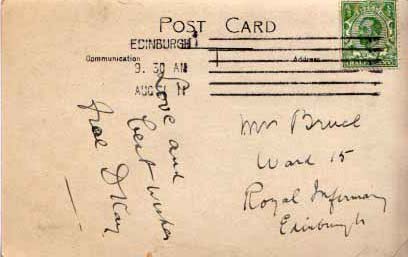 POST CARD
EDINBURGH
Communication
Address
9. 30 AM
AUG
Love and
best wishes
Mrs Bruce
Ward 15
Royal Infirmary
Edinburgh